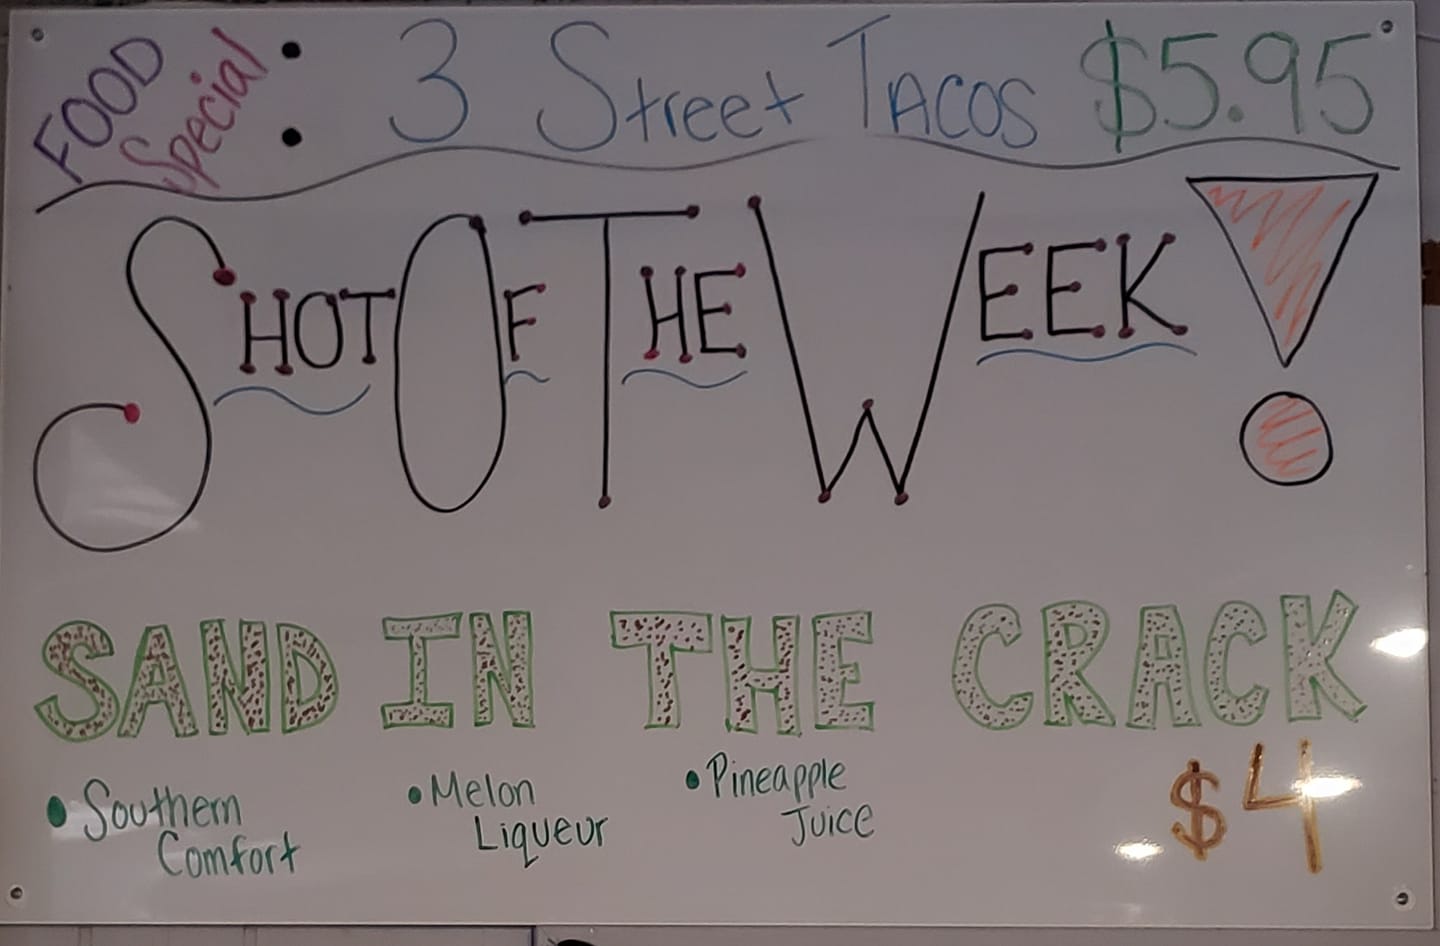 FOOD Special: 3 Street TACOS $5.95
SHOT OF THE WEEK!
SAND IN THE CRACK
• Southern Comfort
• Melon Liqueur
• Pineapple Juice
$4